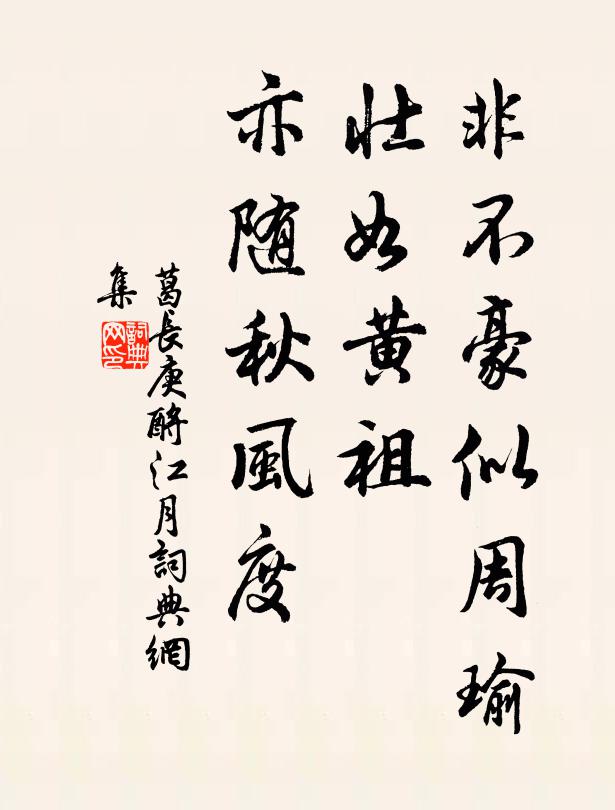 非不豪似周瑜
壮如黄祖
亦随秋風度
葛長庚酹江月詞典網
集
詞典
网印